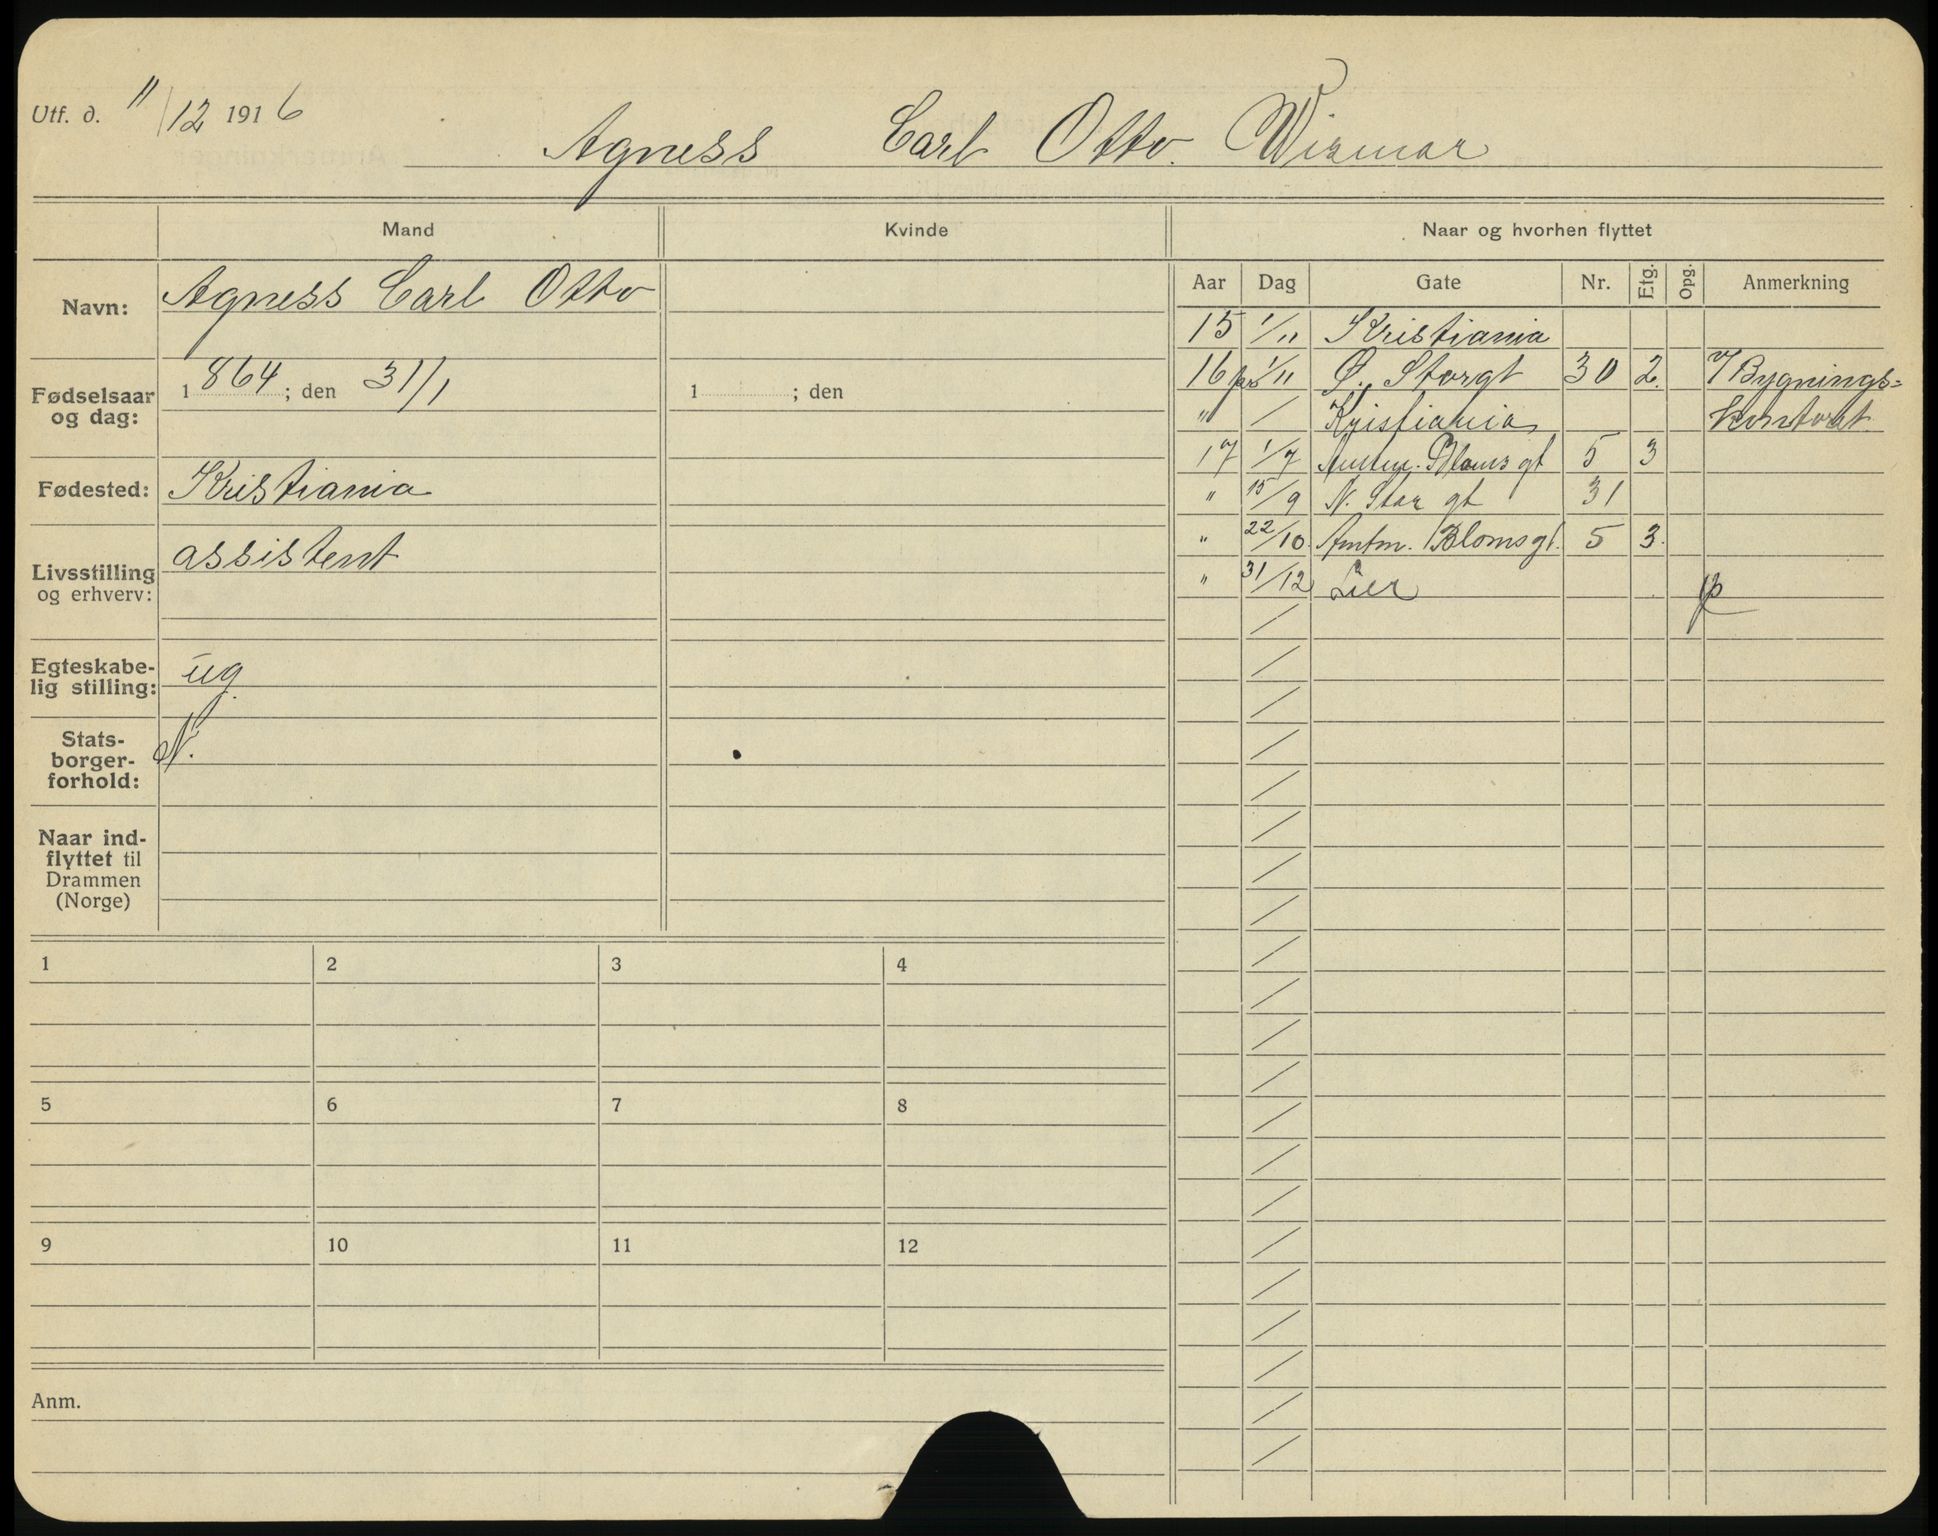 Utf. d. 11/12 1916
Agness Carl Otto. Wismar
Mand Kvinde Naar og hvorhen flyttet
Aar Dag Gate Nr. Etg. Opg. Anmerkning
Navn: Agness Carl Otto
Fødselsaar og dag: 1864; den 31/1 1 ; den
Fødested: Kristiania
Livsstilling og erhverv: assistent
Egteskabe-
lig stilling: ug.
Stats-
borger-
forhold: N.
Naar ind-
flyttet til
Drammen
(Norge)
15 1/11 Kristiania
16 1/11 Ø. Storgt 30 2. Bygnings=
" / Kristiania kontoret
17 1/7 Amtm. Bloms gt 5 3
" 15/9 N. Stor gt 31
" 22/10. Amtm. Blomsgt. 5 3.
" 31/12 Lier
1 2 3 4
5 6 7 8
9 10 11 12
Anm.